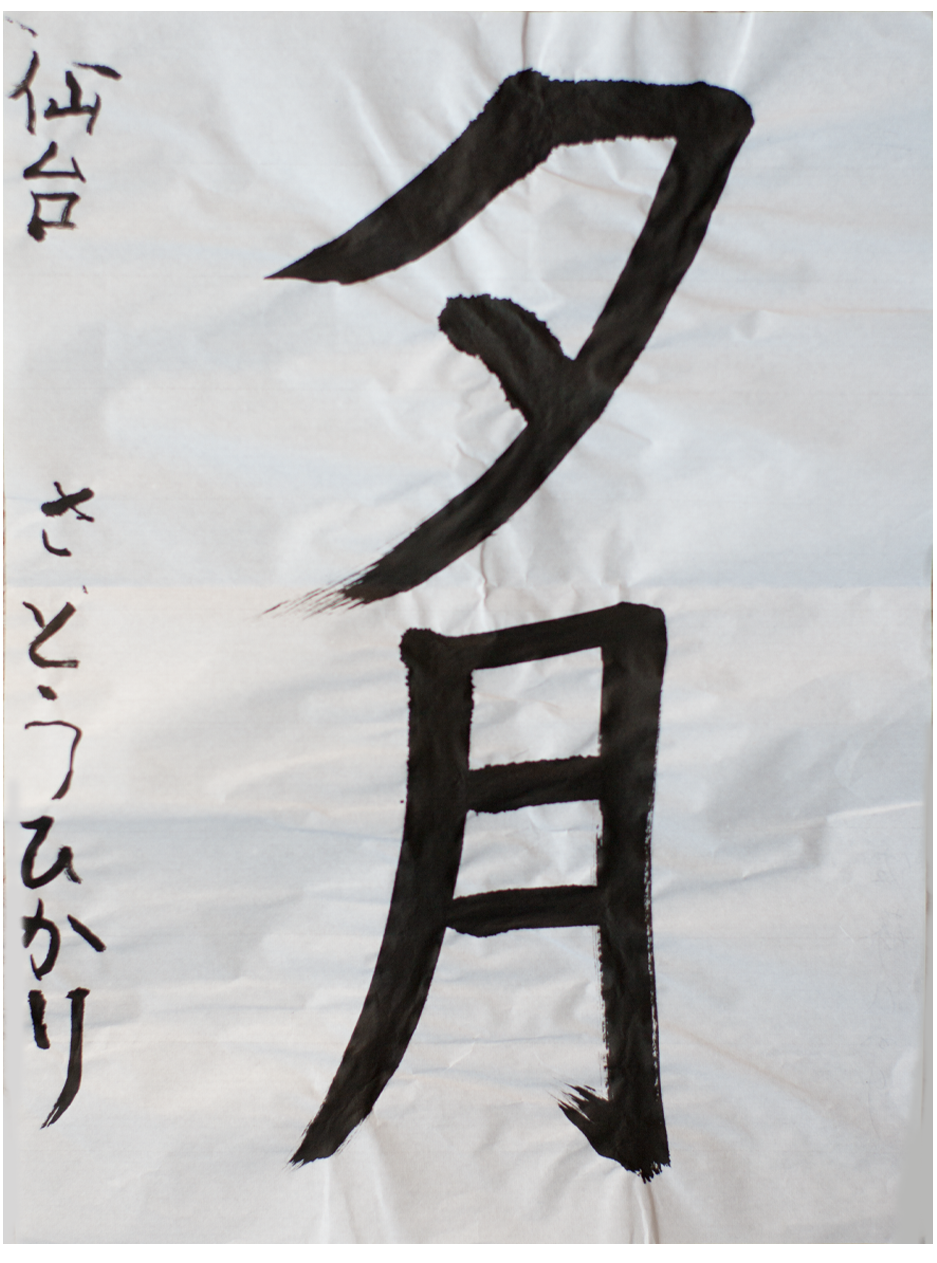 夕月
仙台 さとうひかり